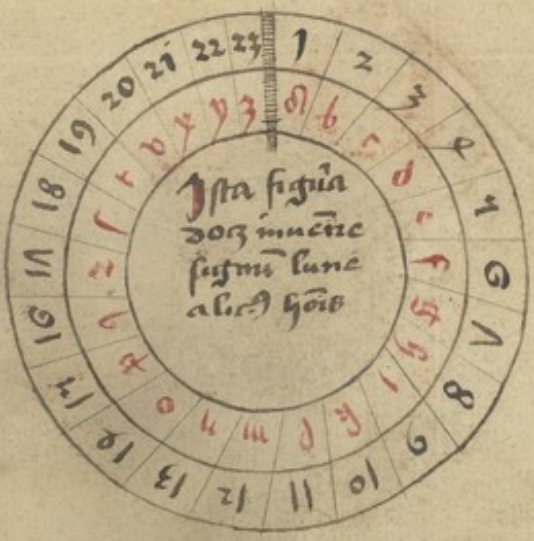 1 2 3 4 5 6 7 8 9 10 11 12 13 14 15 16 17 18 19 20 21 22 23
a b c d e f g h i k l m n o p q r s t v x y z
Ista figura
docz inuēire
signū lune